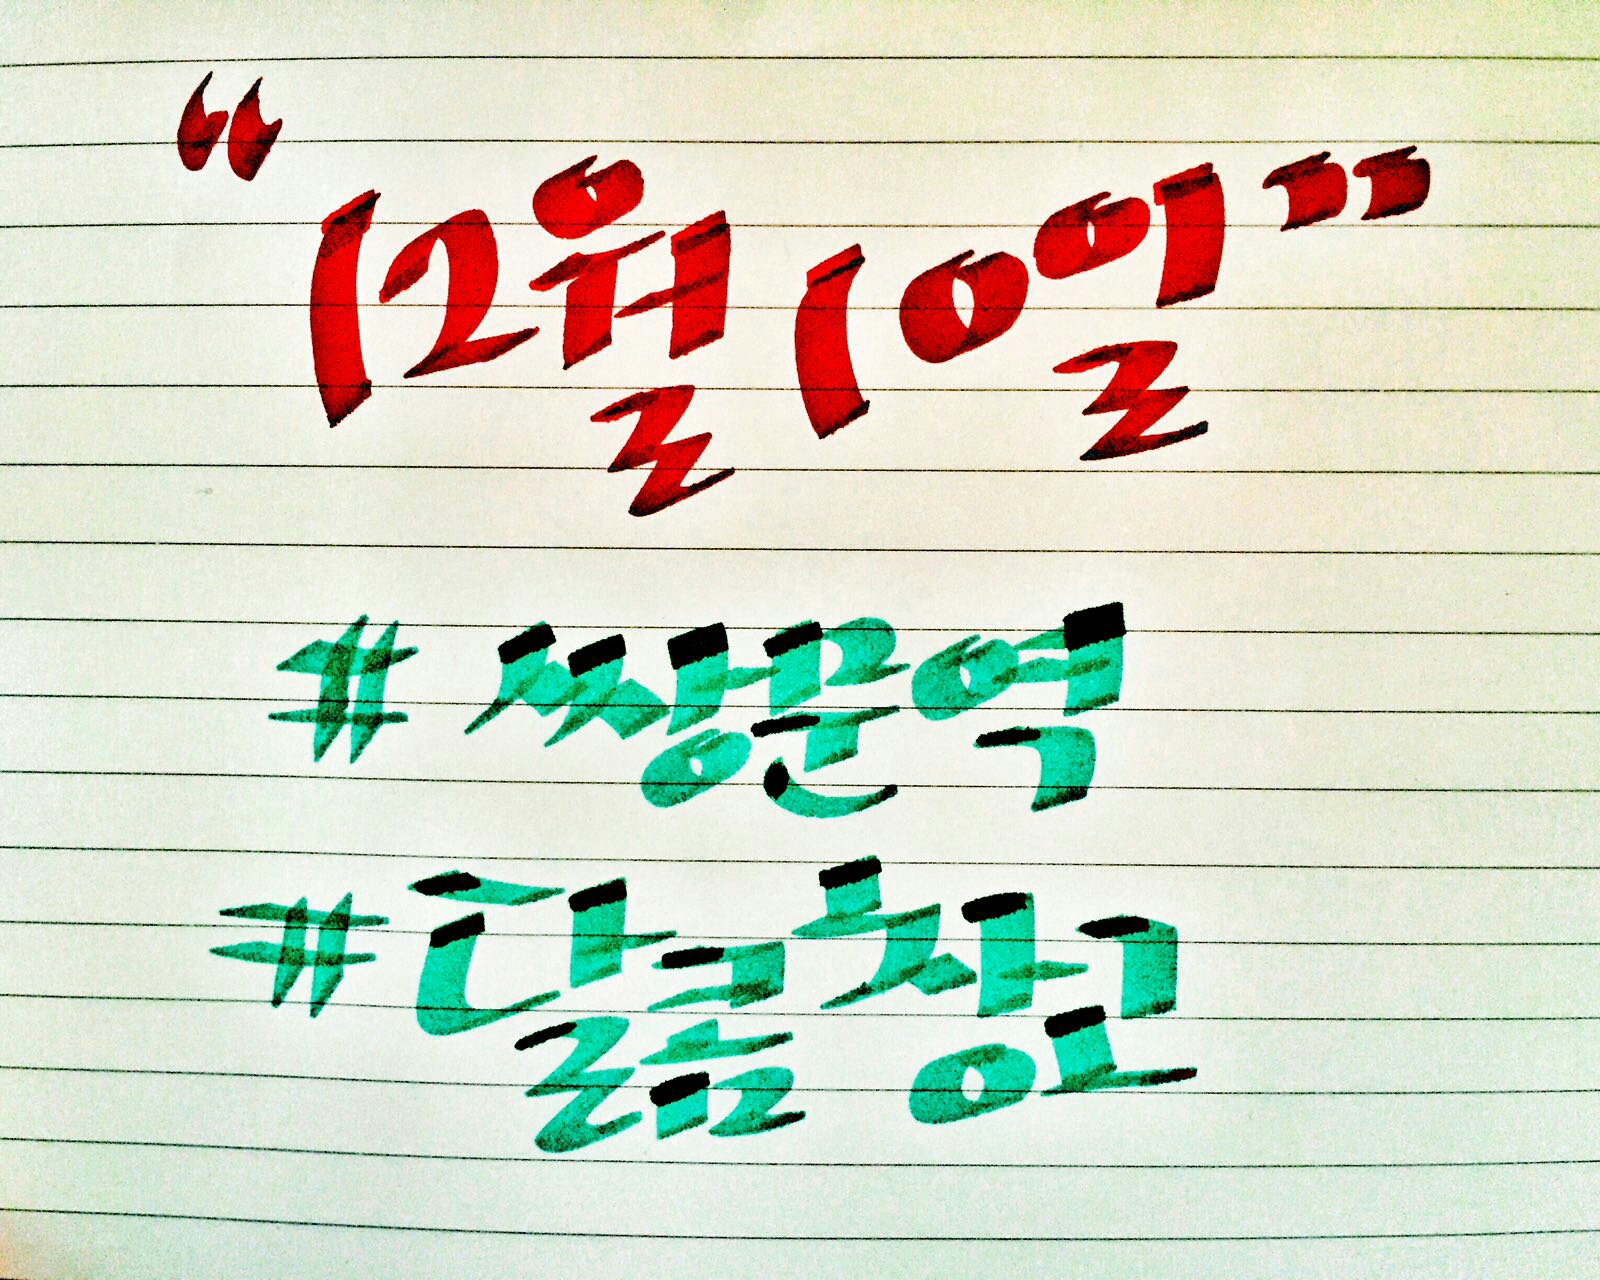 “12월 10일”
# 쌍문역
# 달콤창고